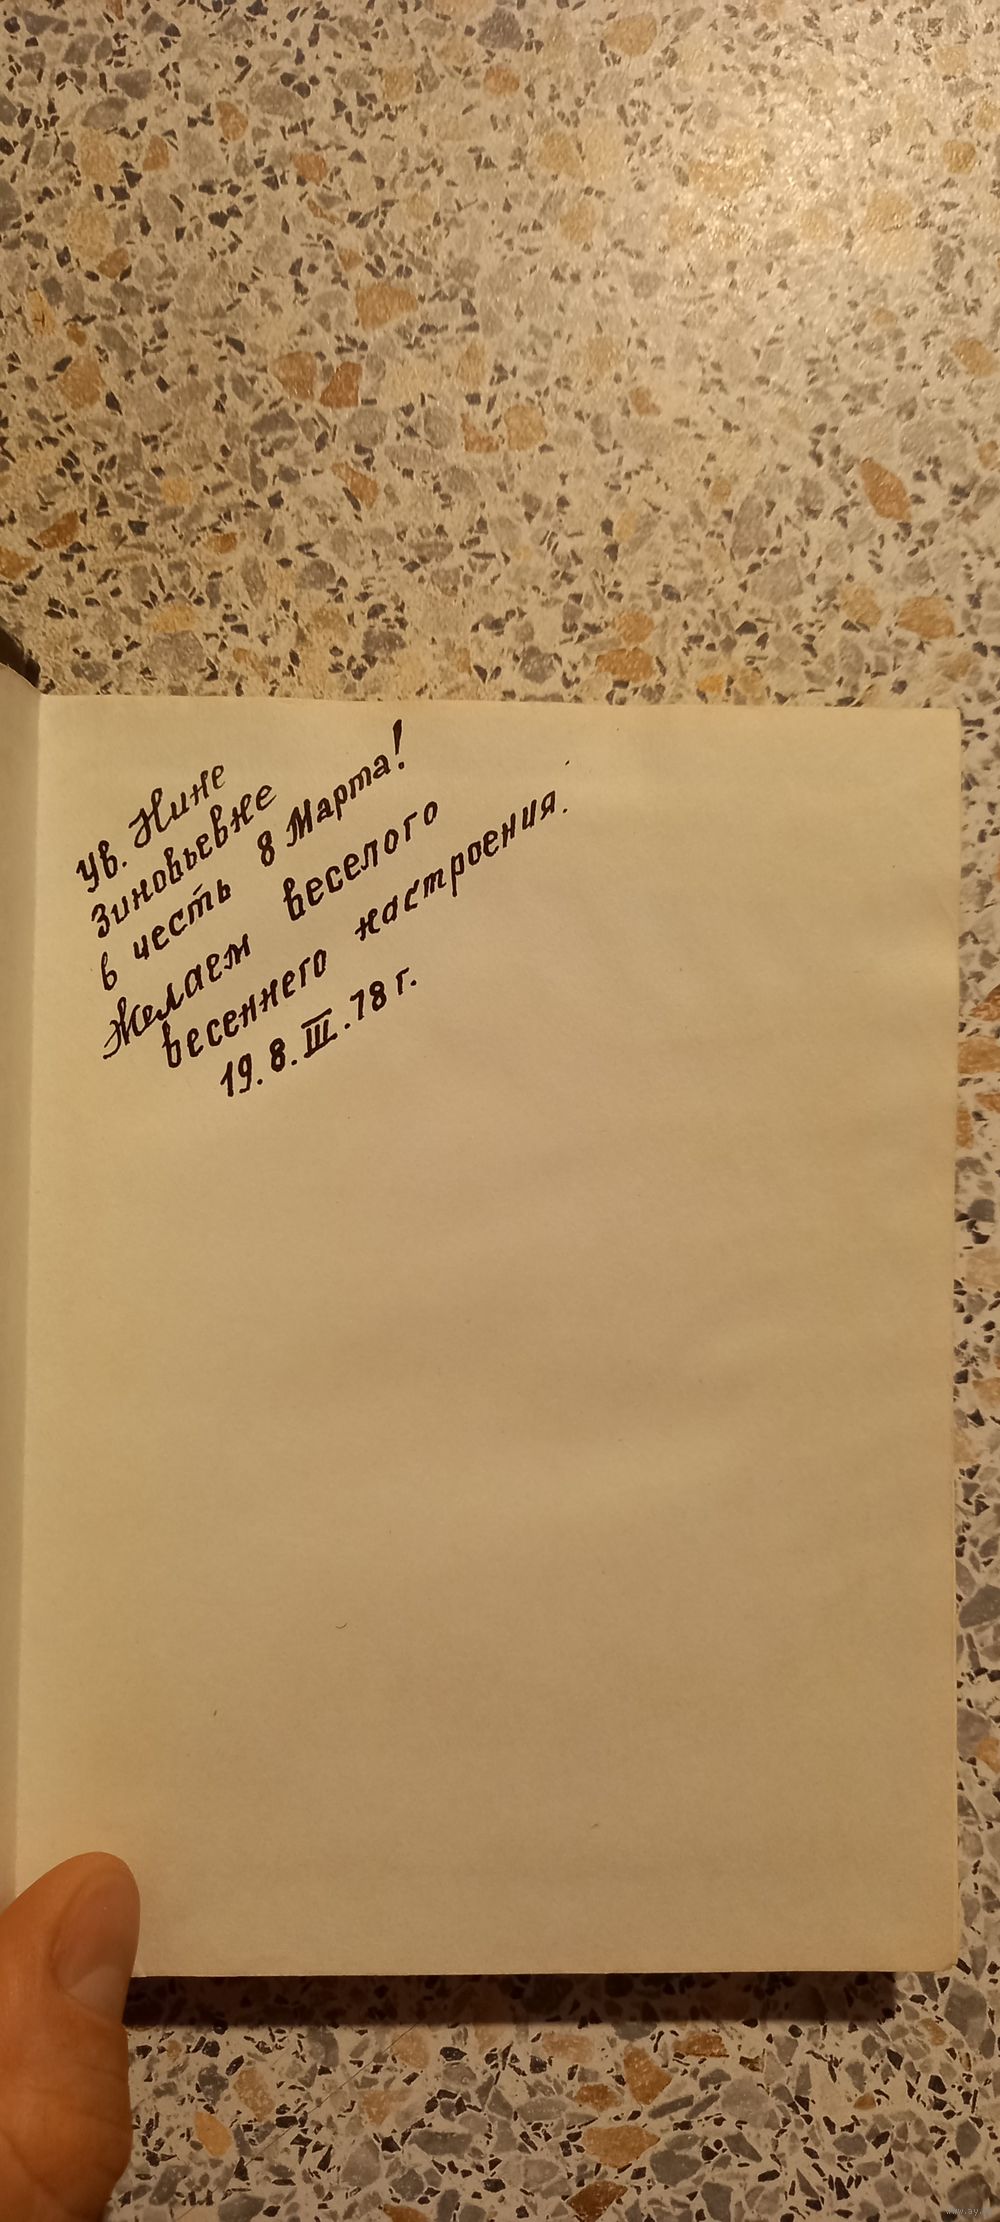 Ув. Нине
Зиновьевне
в честь 8 Марта!
Желаем веселого
весеннего настроения.
19. 8. III. 78 г.